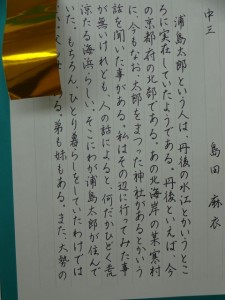 中三 島田麻衣
浦島太郎という人は、丹後の水江とかいうとこ
ろに実在していたようである。丹後といえば、今
の京都府の北部である。あの北海岸の某寒村
に、今もなお、太郎をまつった神社があるとかいう
話を聞いた事がある。私はその辺に行ってみた事
が無いけれども、人の話によると、何だかひどく荒
涼たる海浜らしい。そこにわが浦島太郎が住んで
いた。もちろん、ひとり暮らしをしていたわけでは
弟も妹もある。また、大勢の